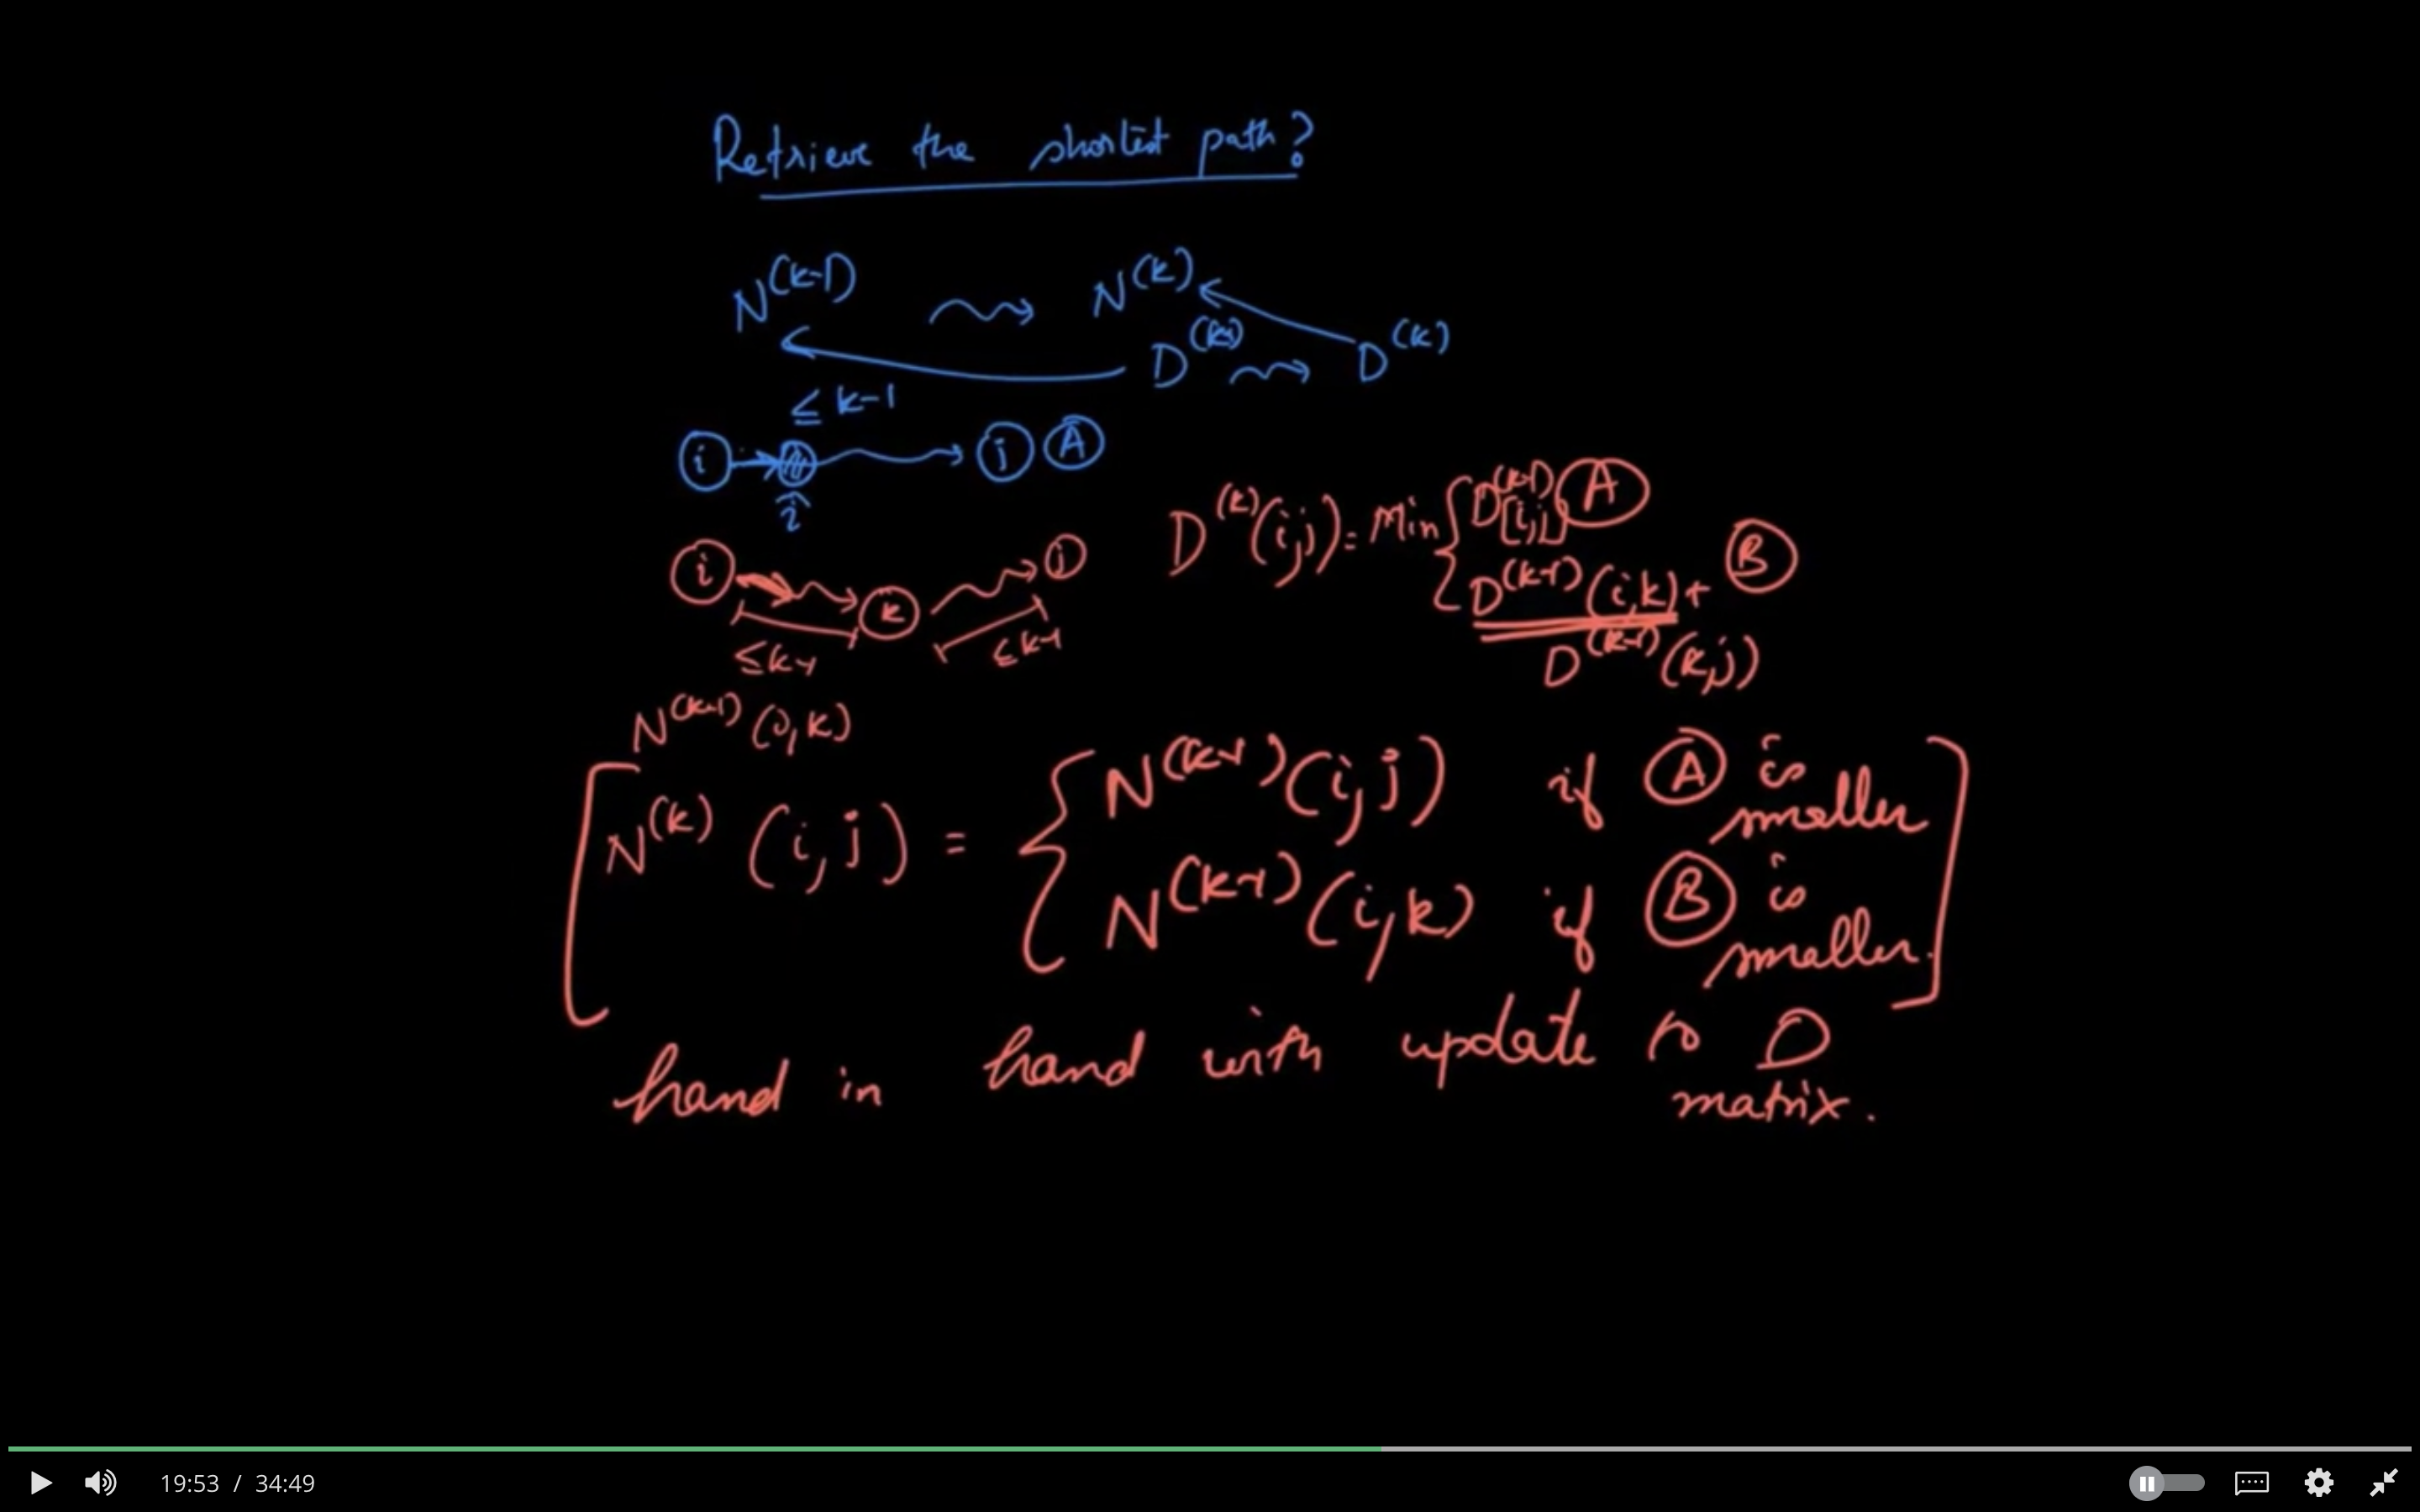 Retrieve the shortest path?
N^(k-1) N^(k)
D^(k-1) D^(k)
≤ k-1
i j A
î
D^(k)(i,j) = Min { D^(k-1)(i,j) A
D^(k-1)(i,k) + B
D^(k-1)(k,j)
i k j
≤k-1 ≤k-1
N^(k-1)(i,k)
N^(k)(i,j) = { N^(k-1)(i,j) if A is smaller
N^(k-1)(i,k) if B is smaller.
hand in hand with update to D
matrix.
19:53 / 34:49